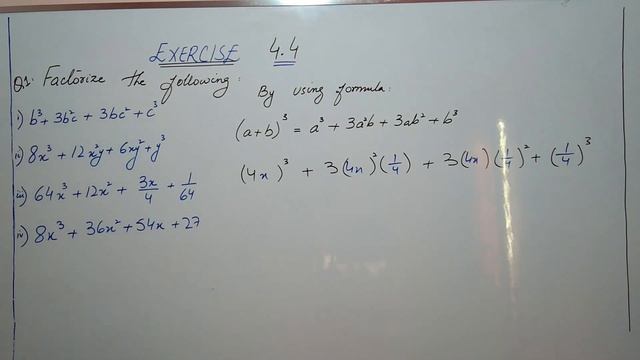 EXERCISE 4.4
Q1: Factorize the following:
i) b³ + 3b²c + 3bc² + c³
ii) 8x³ + 12x²y + 6xy² + y³
iii) 64x³ + 12x² + 3x/4 + 1/64
iv) 8x³ + 36x² + 54x + 27
By using formula:
(a+b)³ = a³ + 3a²b + 3ab² + b³
(4x)³ + 3(4x)²(1/4) + 3(4x)(1/4)² + (1/4)³